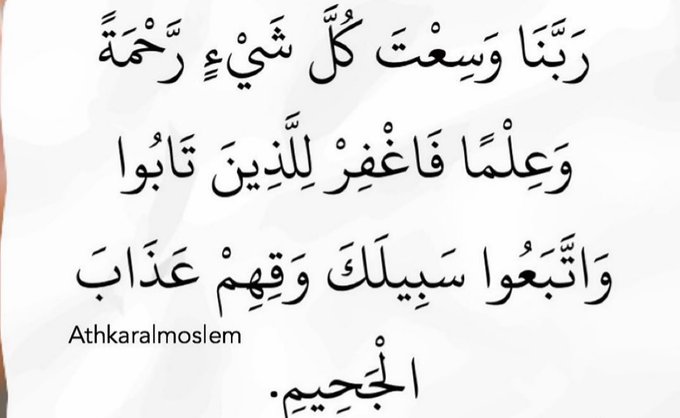 رَبَّنَا وَسِعْتَ كُلَّ شَيْءٍ رَّحْمَةً
وَعِلْمًا فَاغْفِرْ لِلَّذِينَ تَابُوا
وَاتَّبَعُوا سَبِيلَكَ وَقِهِمْ عَذَابَ
Athkaralmoslem
الْجَحِيمِ.